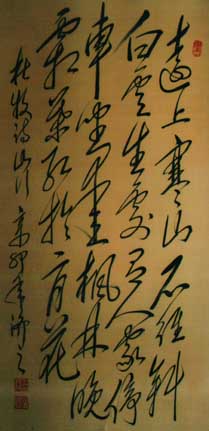 遠上寒山石徑斜
白雲生處有人家停
車坐愛楓林晚
霜葉紅於二月花
杜牧詩山行